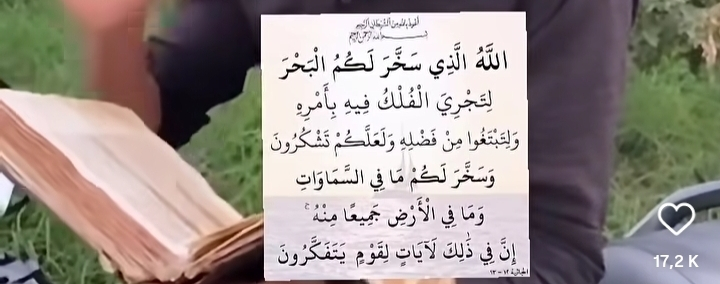 أعوذ بالله من الشيطان الرجيم
بسم الله الرحمن الرحيم
اللَّهُ الَّذِي سَخَّرَ لَكُمُ الْبَحْرَ
لِتَجْرِيَ الْفُلْكُ فِيهِ بِأَمْرِهِ
وَلِتَبْتَغُوا مِنْ فَضْلِهِ وَلَعَلَّكُمْ تَشْكُرُونَ
وَسَخَّرَ لَكُمْ مَا فِي السَّمَاوَاتِ
وَمَا فِي الْأَرْضِ جَمِيعًا مِنْهُ ۚ
إِنَّ فِي ذَٰلِكَ لَآيَاتٍ لِقَوْمٍ يَتَفَكَّرُونَ
الجاثية ١٢ - ١٣
17,2 K